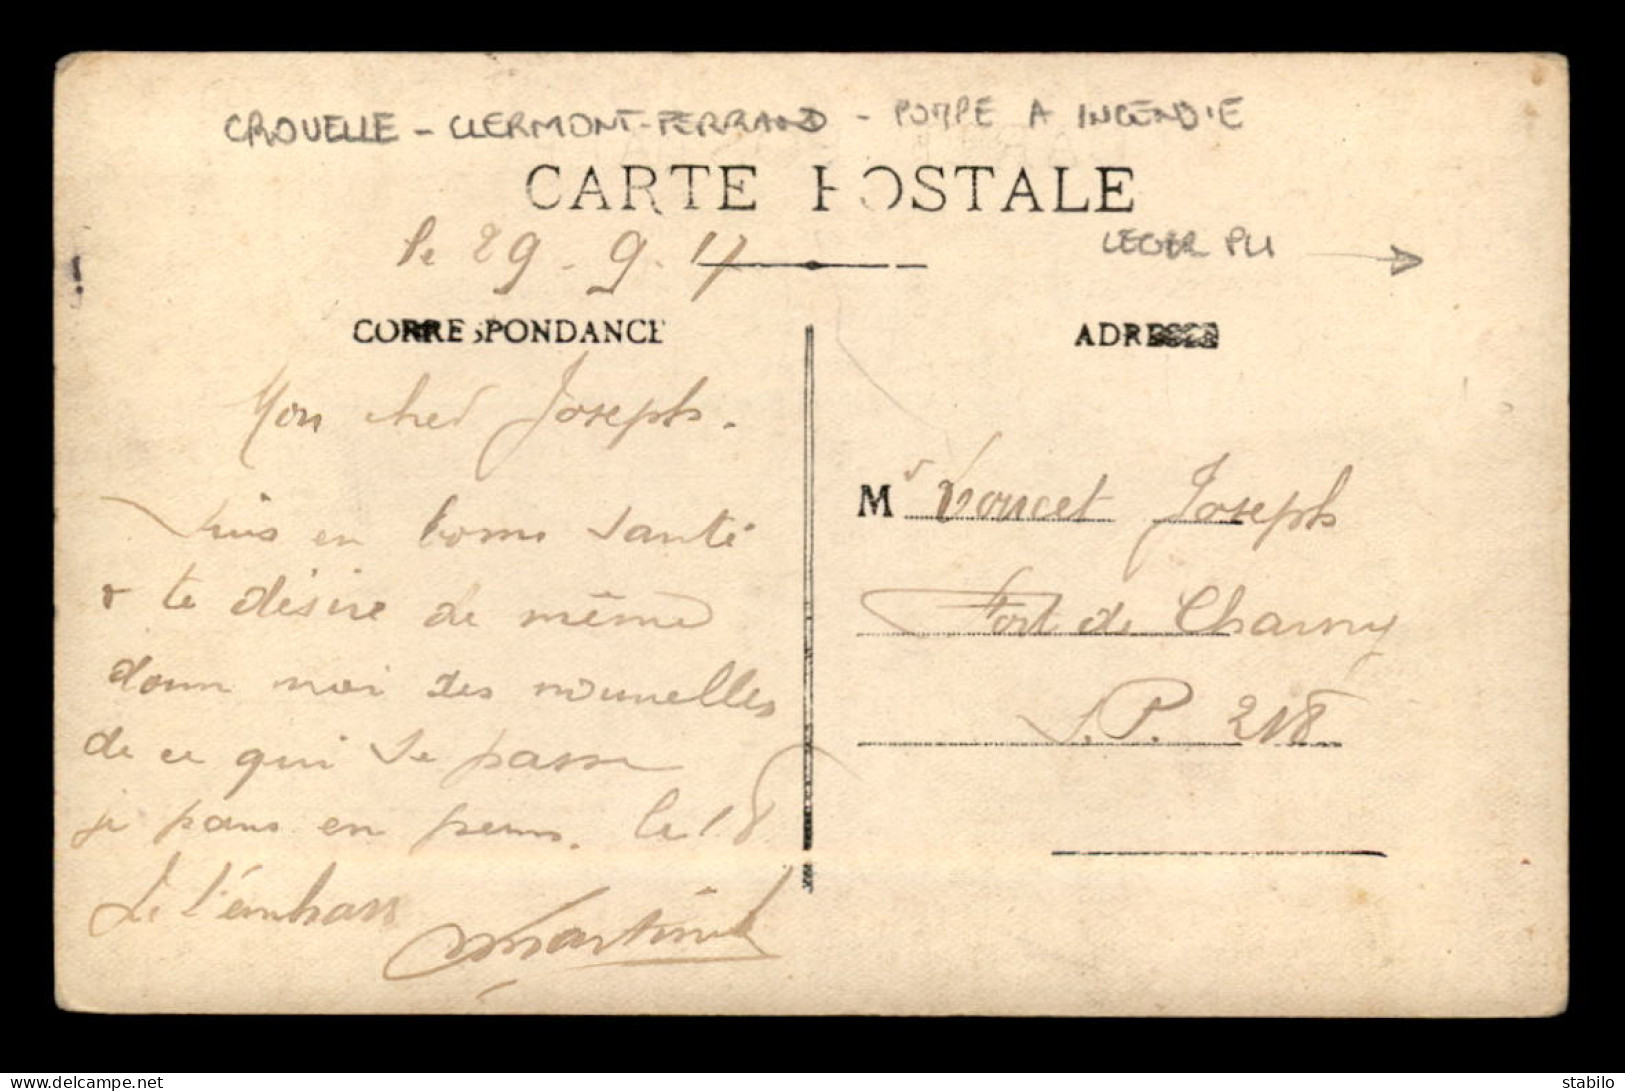 CROUELLE - CLERMONT-FERRAND - POMPE A INCENDIE
CARTE POSTALE
le 29. 9. 17
LEGER PLI
CORRESPONDANCE
Mon cher Joseph.
Suis en bonne santé
te désire de même
donn moi des nouvelles
de ce qui se passe
je pars en perm. le 18
Je t'embrass
Martinet
ADRESSE
Mr Doucet Joseph
Fort de Charny
S.P. 218
delcampe.net
stabilo